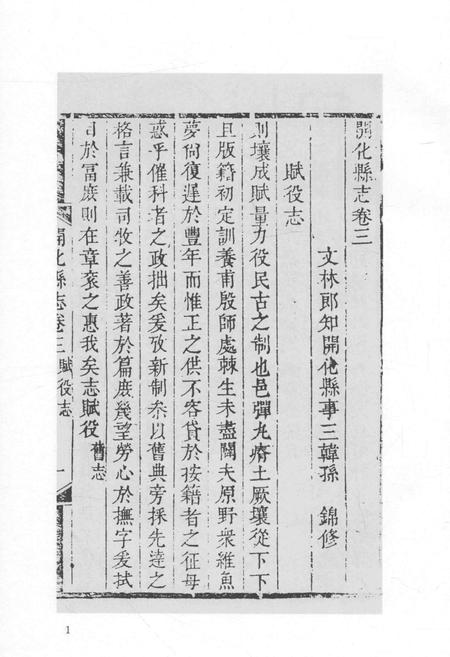 開化縣志卷三
文林郎知開化縣事三韓孫 錦修
賦役志
則壤成賦量力役民古之制也邑彈丸瘠土厥壤從下下
且版籍初定訓養甫殷師處棘生未盡闢夫原野衆維魚
夢尙復遲於豐年而惟正之供不容貸於按籍者之征毋
惑乎催科者之政拙矣爰攷新制叅以舊典旁採先達之
格言兼載司牧之善政著於篇庶幾望勞心於撫字爰拭
目於冨庶則在章袞之惠我矣志賦役 舊志
開化縣志卷三 賦役志 一
1